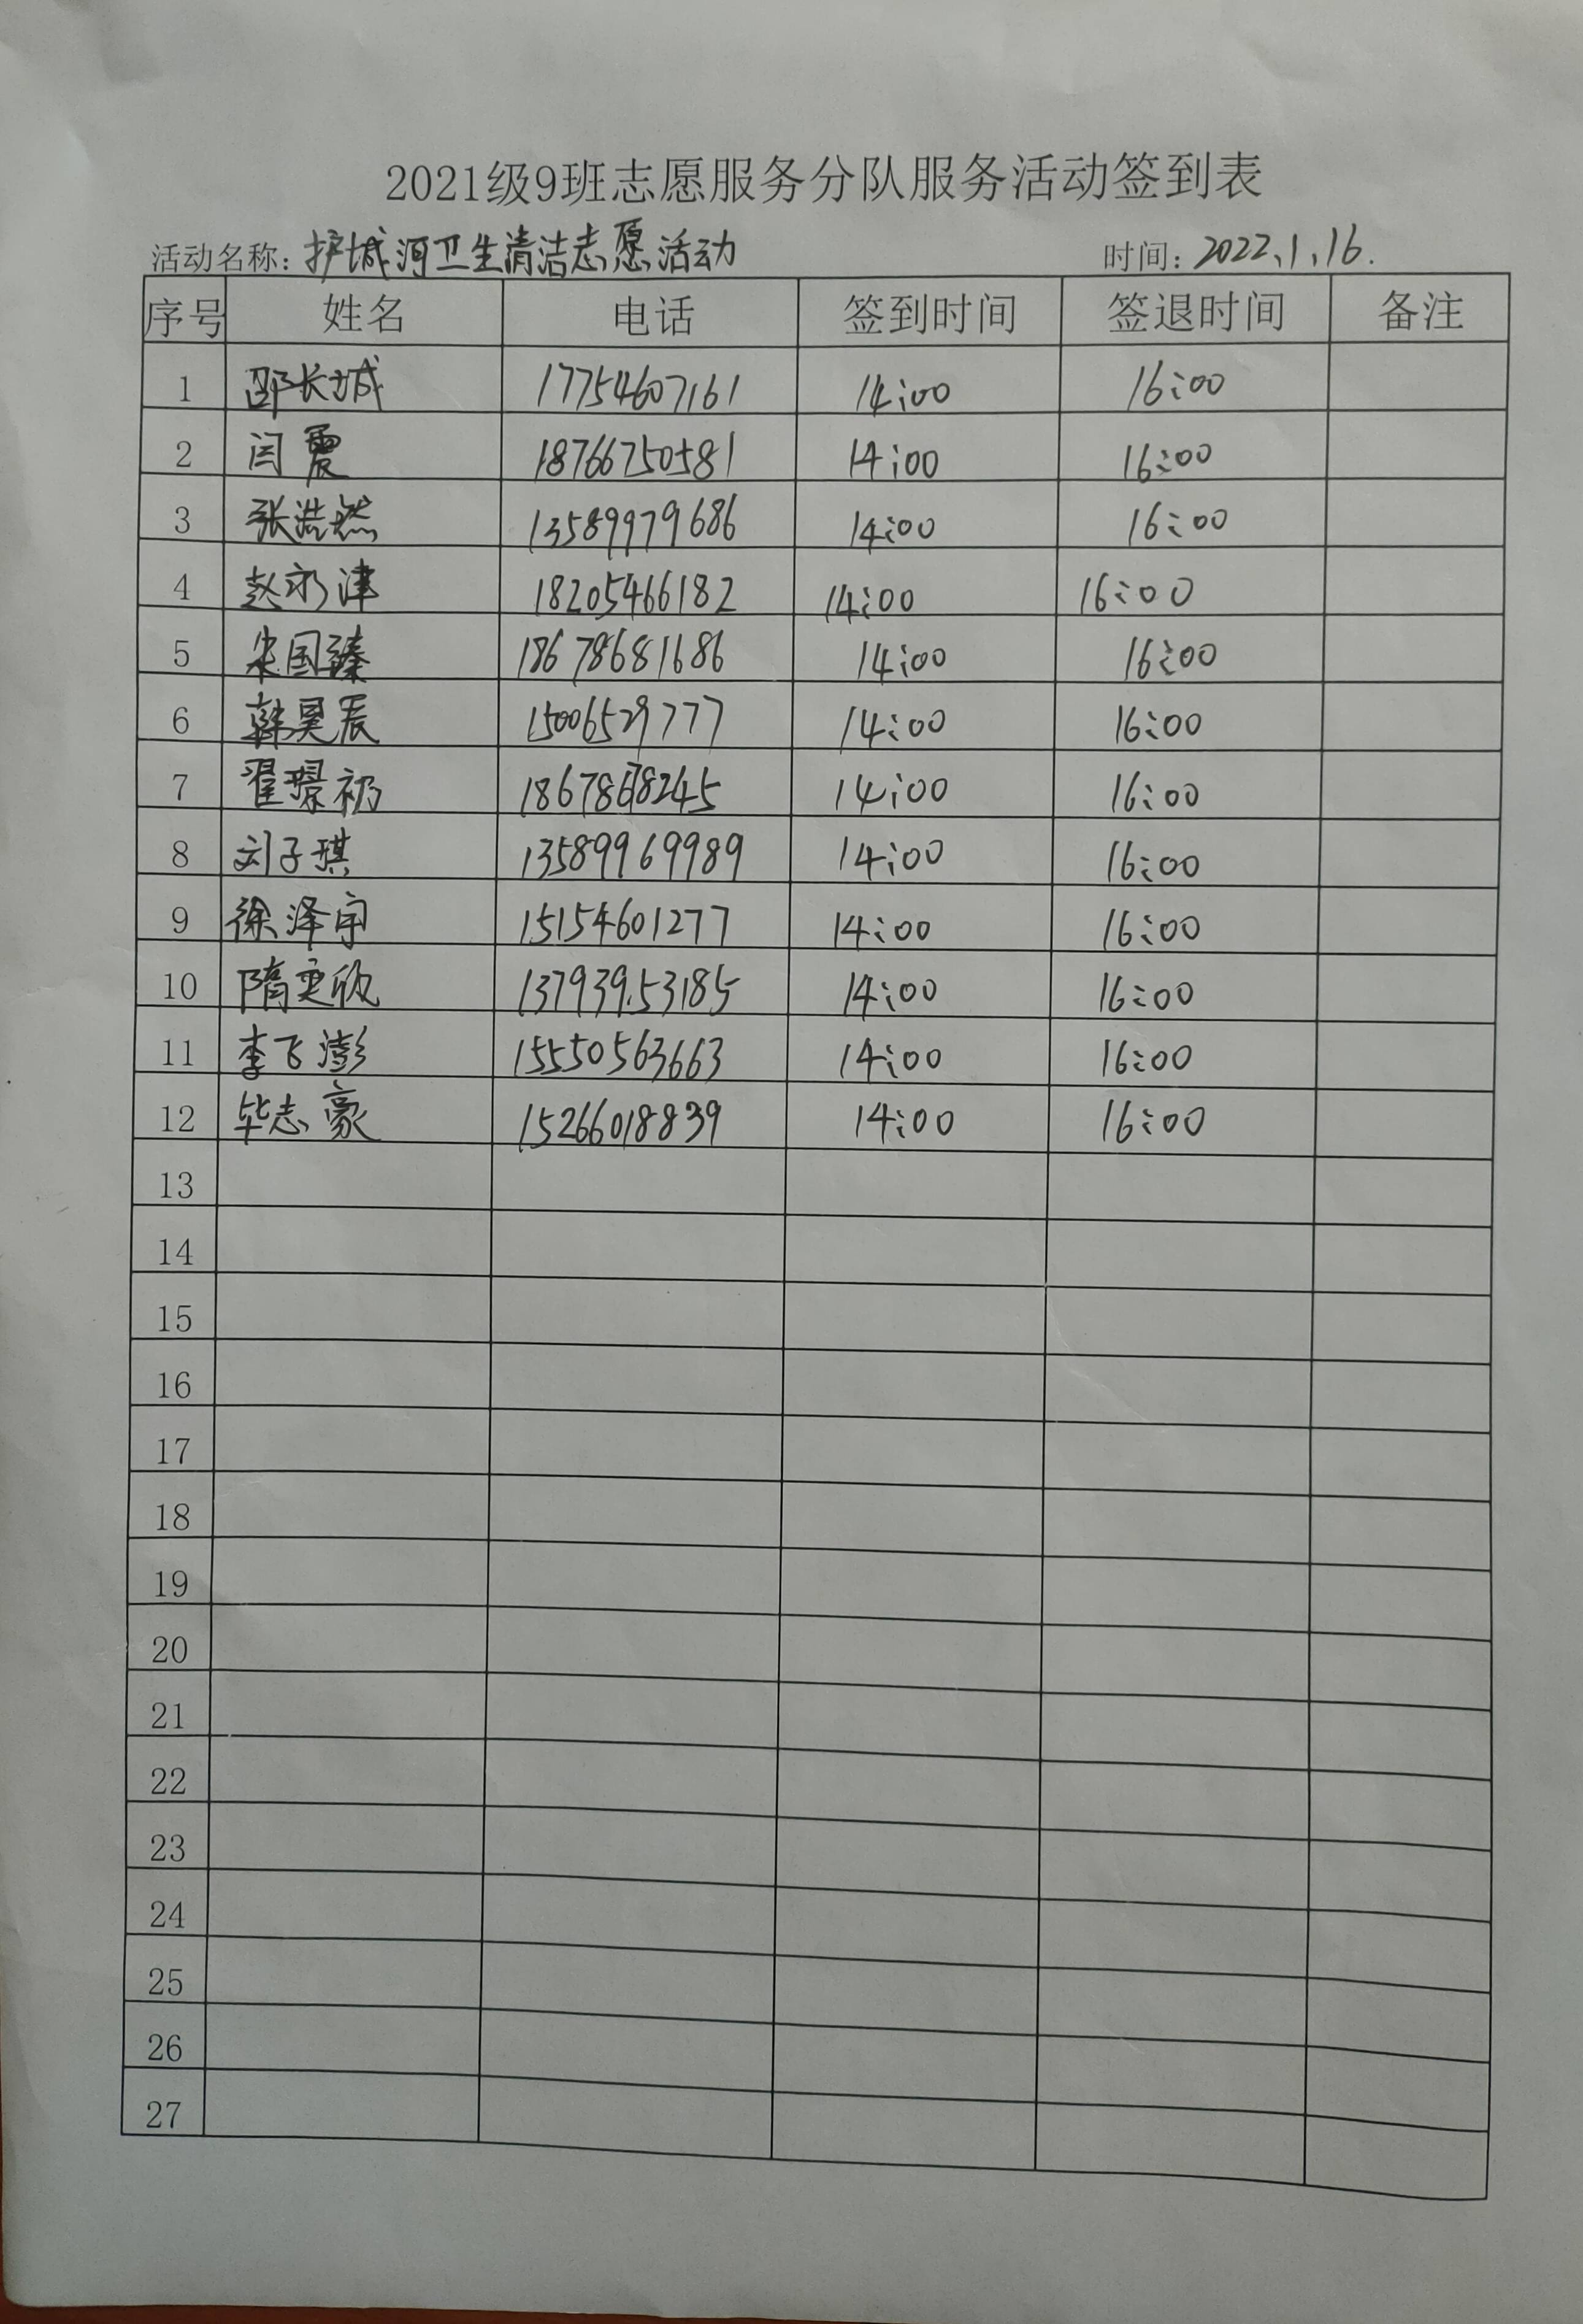 2021级9班志愿服务分队服务活动签到表
活动名称：护城河卫生清洁志愿活动 时间：2022.1.16.
序号 姓名 电话 签到时间 签退时间 备注
1 邵长城 17754607161 14:00 16:00
2 闫震 18766750581 14:00 16:00
3 张浩然 13589979686 14:00 16:00
4 赵永津 18205466182 14:00 16:00
5 宋国臻 18678681686 14:00 16:00
6 韩昊辰 15006529777 14:00 16:00
7 翟璟礽 18678678245 14:00 16:00
8 刘子琪 13589969989 14:00 16:00
9 徐泽宇 15154601277 14:00 16:00
10 隋奕欣 13793953185 14:00 16:00
11 李飞澎 15550563663 14:00 16:00
12 毕志豪 15266018839 14:00 16:00
13
14
15
16
17
18
19
20
21
22
23
24
25
26
27